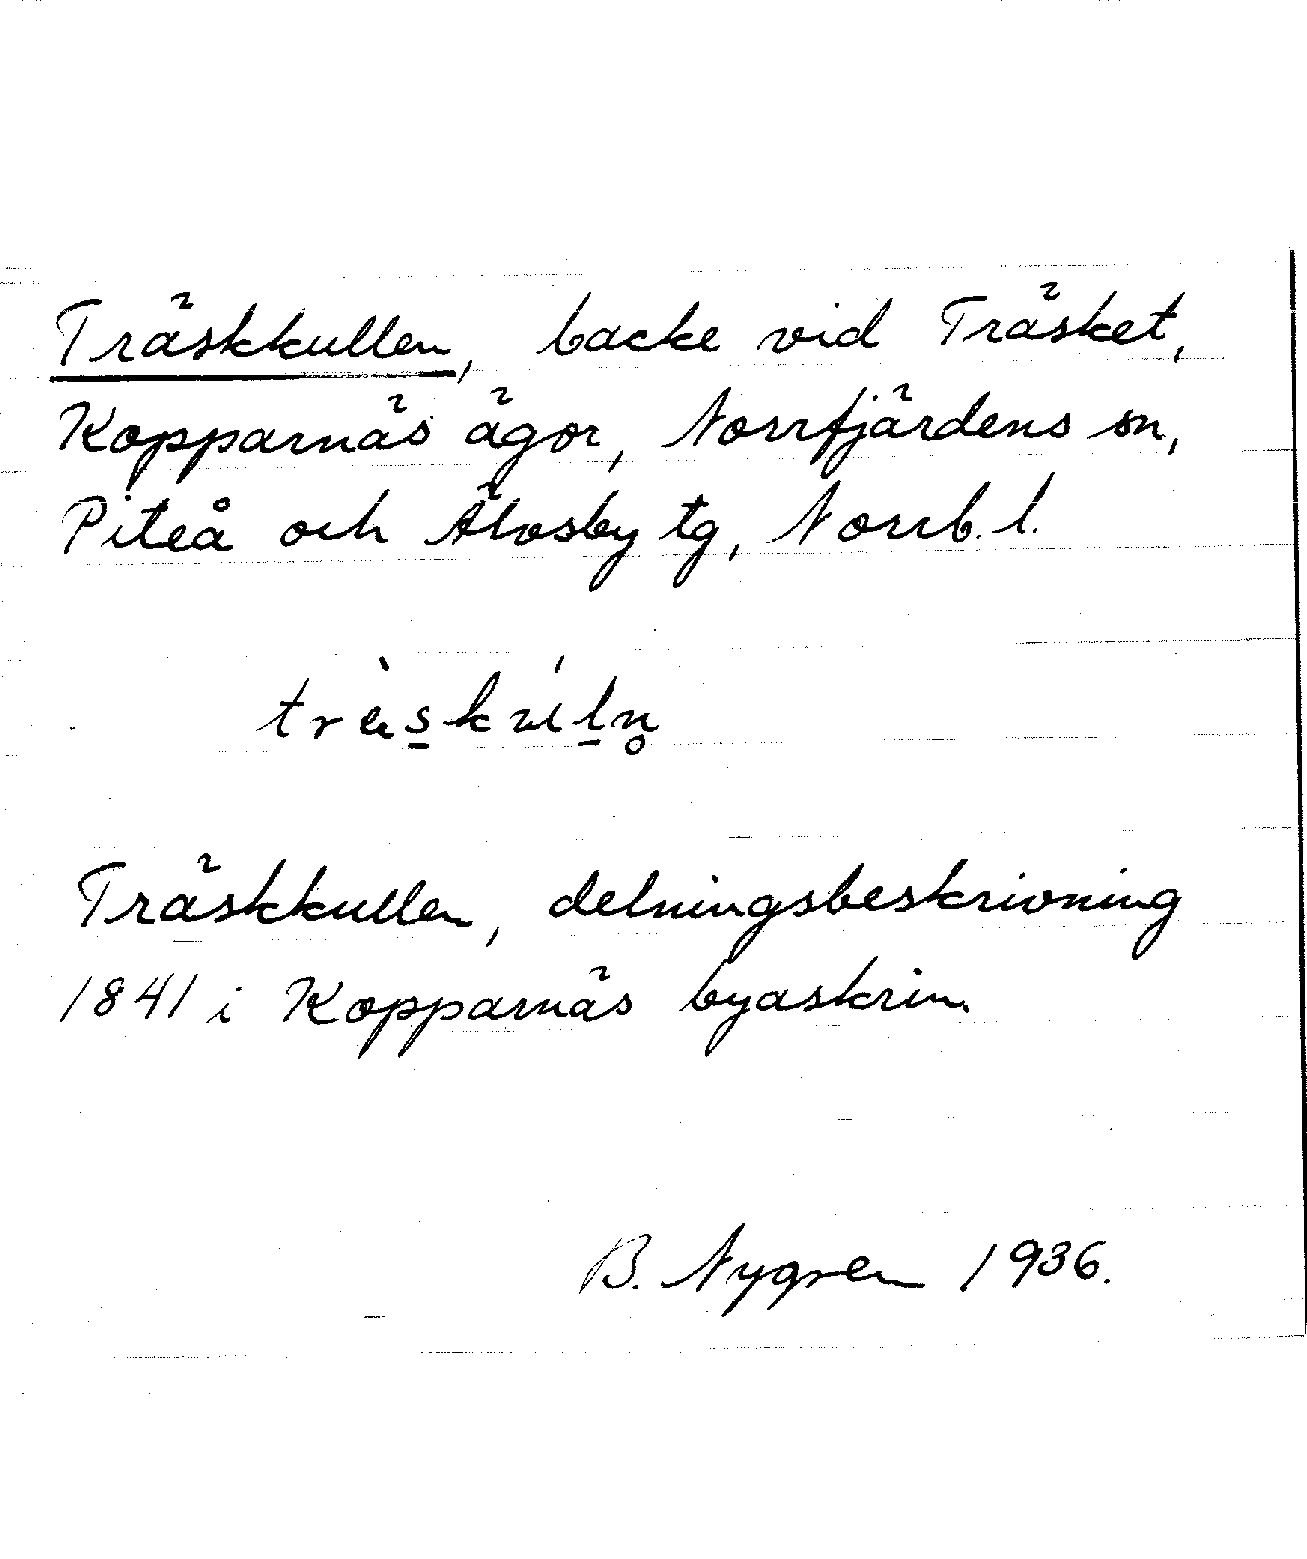 Träskkullen, backe vid Träsket,
Kopparnäs ägor, Norrfjärdens sn,
Piteå och Älvsby tg, Norrb. l.
Träskkullen, delningsbeskrivning
1841 i Kopparnäs byaskrin.
B. Nygren 1936.